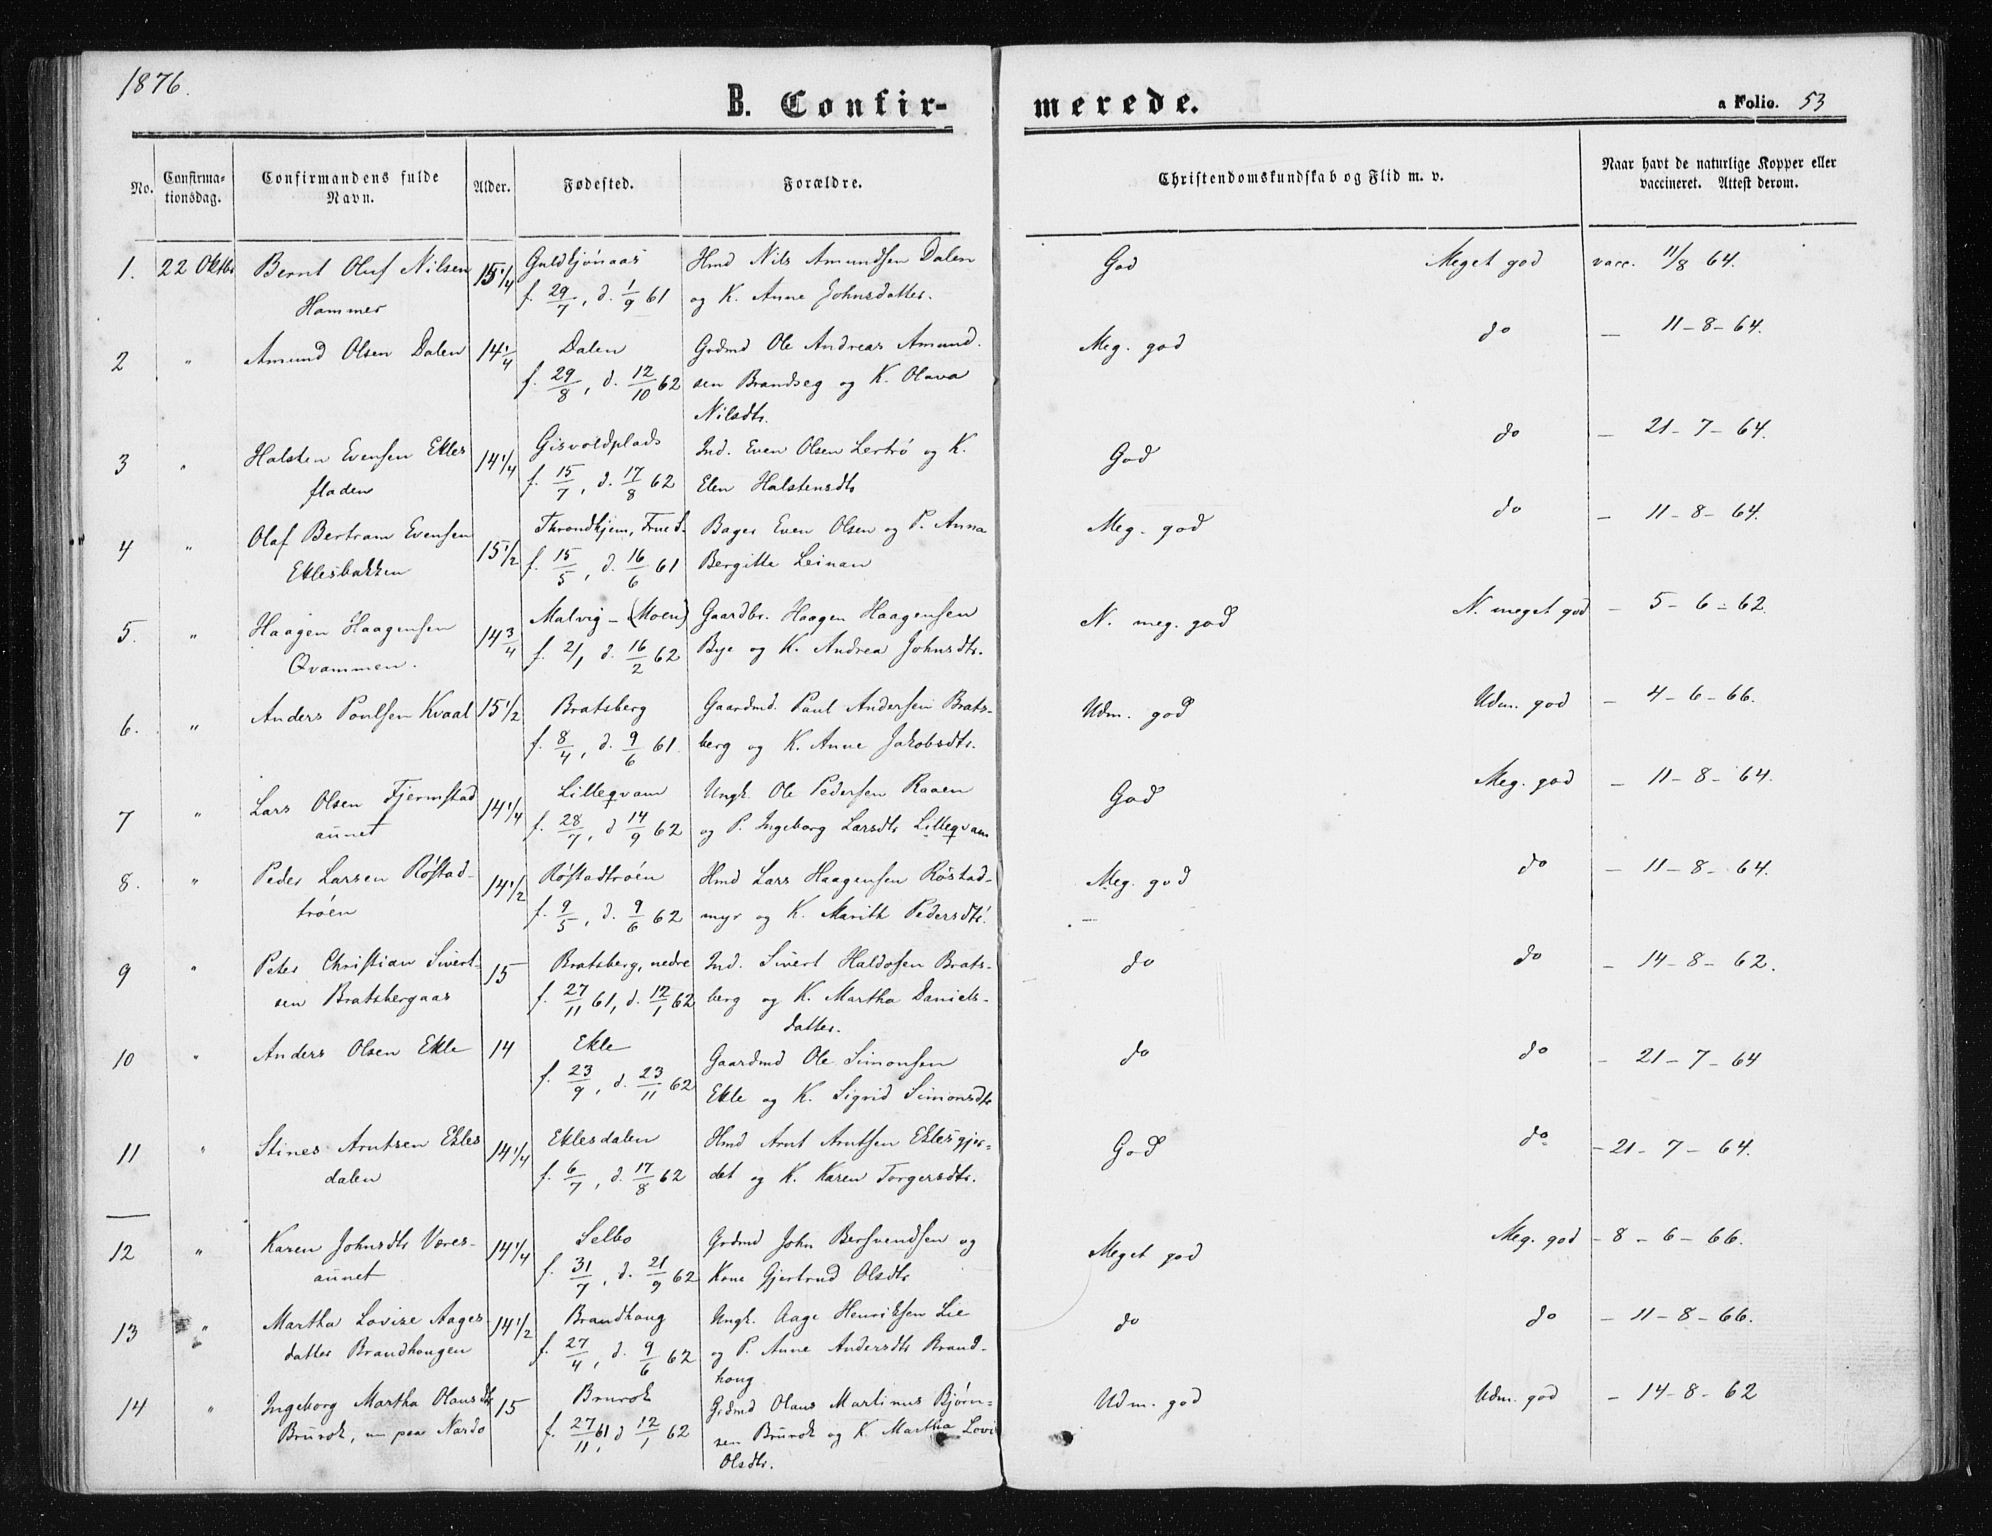 1876.
B. Confirmerede.
a Folio. 53
No.
Confirmationsdag.
Confirmandens fulde Navn.
Alder.
Fødested.
Forældre.
Christendomskundskab og Flid m. v.
Naar havt de naturlige Kopper eller vaccineret. Attest derom.
1. 22 Oktbr Bernt Oluf Nilsen 15 1/4 Hmd Nils Amundsen Dalen God Meget god vacc. 11/8 64.
Hammer f. 29/7, d. 1/9 61 og K. Anne Johnsdatter.
2 " Amund Olsen Dalen 14 1/4 Dalen Grdmd Ole Andreas Amund- Meg. god do — 11-8-64.
f. 29/8, d. 12/10 62 sen Brandseg og K. Olava
Nilsdtr.
3 " Halsten Evensen Ekles 14 1/4 Gisvoldplads Ind. Even Olsen Lertrø og K. God do — 21-7-64.
fladen f. 15/7, d. 17/8 62 Elen Halstensdtr
4 " Olaf Bertram Evensen 15 1/2 Throndhjem, Frue S. Bager Even Olsen og P. Anna Meg. god do — 11-8-64.
Eklesbakken f. 15/5, d. 16/6 61 Bergitte Leinan
5. " Haagen Haagensen 14 3/4 Malvig - (Moen) Gaardbr. Haagen Haagensen N. meg. god N. meget god — 5-6-62.
Qvammen. f. 2/1 d. 16/2 62 Bye og K. Andrea Johnsdtr.
6. " Anders Poulsen Kvaal 15 1/2 Bratsberg Gaardmd. Paul Andersen Brats- Udm. god Udm. god — 4-6-66.
f. 8/4, d. 9/6 61. berg og K. Anne Jakobsdtr.
7 " Lars Olsen Fjermstad 14 1/4 Lilleqvam Ungk. Ole Pedersen Raaen God Meg. god — 11-8-64.
aunet f. 28/7, d 14/9 62 og P. Ingeborg Larsdtr Lilleqvam
8. " Peder Larsen Røstad- 14 1/2 Røstadtrøen Hmd Lars Haagensen Røstad- Meg. god do — 11-8-64.
trøen f. 9/5, d. 9/6 62 myr og K. Marith Pedersdtr.
9 " Peter Christian Sivert- 15 Bratsberg, nedre Ind. Sivert Haldosen Brats- do do — 14-8-62.
sen Bratsbergaas f. 27/11 61, d. 12/1 62 berg og K. Martha Daniels-
datter.
10 " Anders Olsen Ekle 14 Ekle Gaardmd Ole Simonsen do do — 21-7-64
f. 23/9, d. 23/11 62 Ekle og K. Sigrid Simonsdtr
11 " Stines Arntsen Ekles 14 1/4 Eklesdalen Hmd Arnt Arntsen Eklesgjer- God do. — 21-7-64.
dalen f. 6/7, d. 17/8 62 det og K. Karen Torgersdtr.
12 " Karen Johnsdtr Væres- 14 1/4 Selbo Grdmd John Bersvendsen og Meget god Meg. god — 8-6-66.
aunet f. 31/7, d. 21/9 62 Kone Gjertrud Olsdtr
13 " Martha Lovise Aages 14 1/2 Brandhaug Ungk. Aage Henriksen Lie do do — 11-8-66.
datter Brandhaugen f. 27/4, d. 9/6 62 og P. Anne Andersdtr Brand-
haug
14 " Ingeborg Martha Olausdtr 15 Brurok Grdmd Olaus Martinus Bjørn- Udm. god Udm. god — 14-8-62
Brurok, nu paa Nardo f. 27/11 61, d 12/1 62 sen Brurok og K. Martha Lovi
Olsdtr.